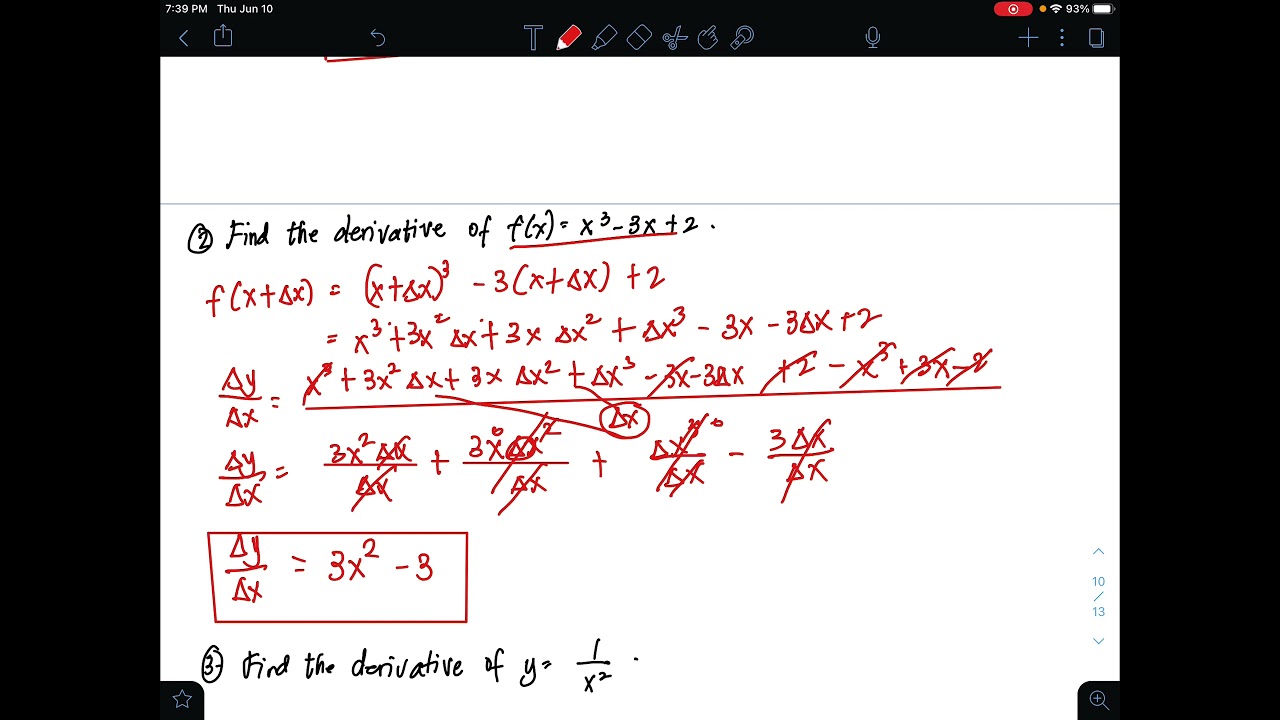 7:39 PM Thu Jun 10
93%
② Find the derivative of f(x) = x³ - 3x + 2.
f(x+Δx) = (x+Δx)³ - 3(x+Δx) + 2
= x³ + 3x²Δx + 3xΔx² + Δx³ - 3x - 3Δx + 2
Δy/Δx = x³ + 3x²Δx + 3xΔx² + Δx³ - 3x - 3Δx + 2 - x³ + 3x - 2 / Δx
Δy/Δx = 3x²Δx/Δx + 3xΔx²/Δx + Δx³/Δx - 3Δx/Δx
Δy/Δx = 3x² - 3
③ Find the derivative of y = 1/x².
10
/
13